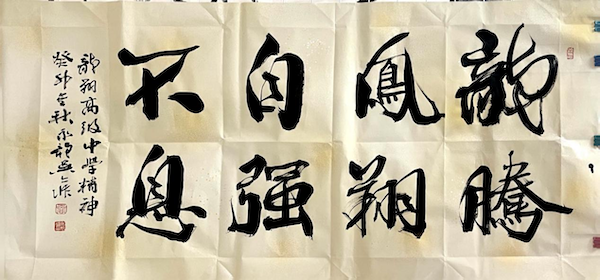 龍騰
鳳翔
自强
不息
龍翔高级中學精神
癸卯金秋